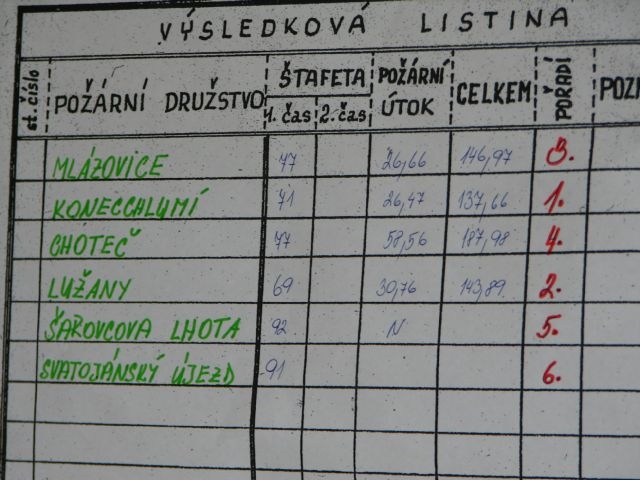 VÝSLEDKOVÁ LISTINA
st. číslo POŽÁRNÍ DRUŽSTVO ŠTAFETA 1. čas 2. čas POŽÁRNÍ ÚTOK CELKEM POŘADÍ POZN
MLÁZOVICE 77 26,66 146,97 3.
KONECCHLUMÍ 71 26,47 137,66 1.
CHOTEČ 77 58,56 187,98 4.
LUŽANY 69 30,76 143,89 2.
ŠÁROVCOVA LHOTA 92 N 5.
SVATOJÁNSKÝ ÚJEZD 91 6.